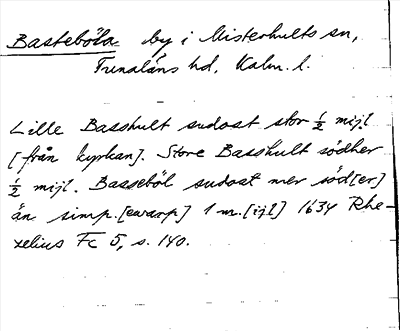 Basteböla by i Misterhults sn,
Tunaläns hd, Kalm. l.
Lille Basshult sudost stor ½ mijl
[från kyrkan]. Store Basshult södher
½ mijl. Bassebõl sudost mer söd[er]
än simp. [ewarp] 1 m. [ijl] 1634 Rhe-
zelius Fc 5, s. 140.